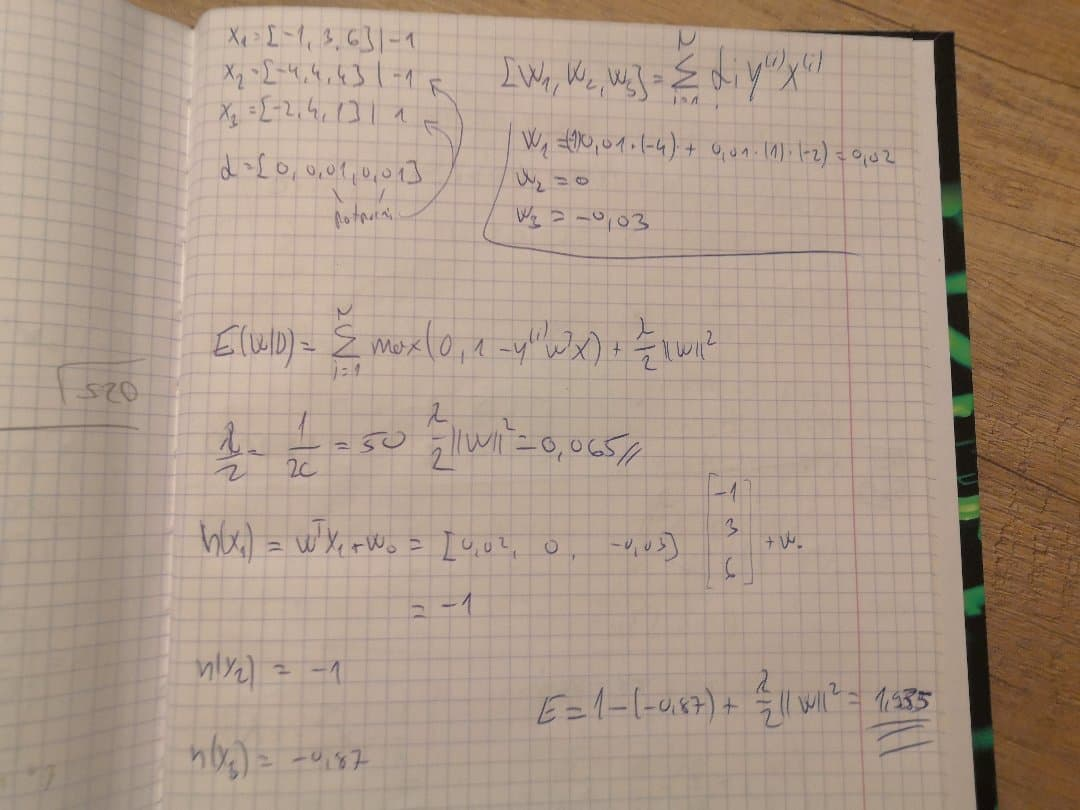 x₁=[-1, 3, 6] | -1
x₂=[-4, 4, 4] | -1
x₃=[-2, 4, 1] | 1
α=[0, 0,01, 0,01]
[w₁, w₂, w₃] = Σᵢ₌₁ᴺ αᵢ y⁽ⁱ⁾ x⁽ⁱ⁾
w₁ = (-1)0,01·(-4) + 0,01·(1)·(-2) = 0,02
w₂ = 0
w₃ = -0,03
E(w|D) = Σᵢ₌₁ᴺ max(0, 1 - y⁽ⁱ⁾wᵀx) + λ/2 ||w||²
√520
λ/2 = 1/2C = 50 λ/2 ||w||² = 0,065//
h(x₁) = wᵀx₁ + w₀ = [0,02, 0, -0,03] [-1 3 6] + w₀
= -1
h(x₂) = -1
E = 1 - (-0,87) + λ/2 ||w||² = 1,935
h(x₃) = -0,87